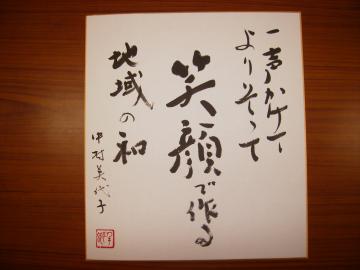 一声かけて
よりそって
笑顔で作る
地域の和
中村美代子